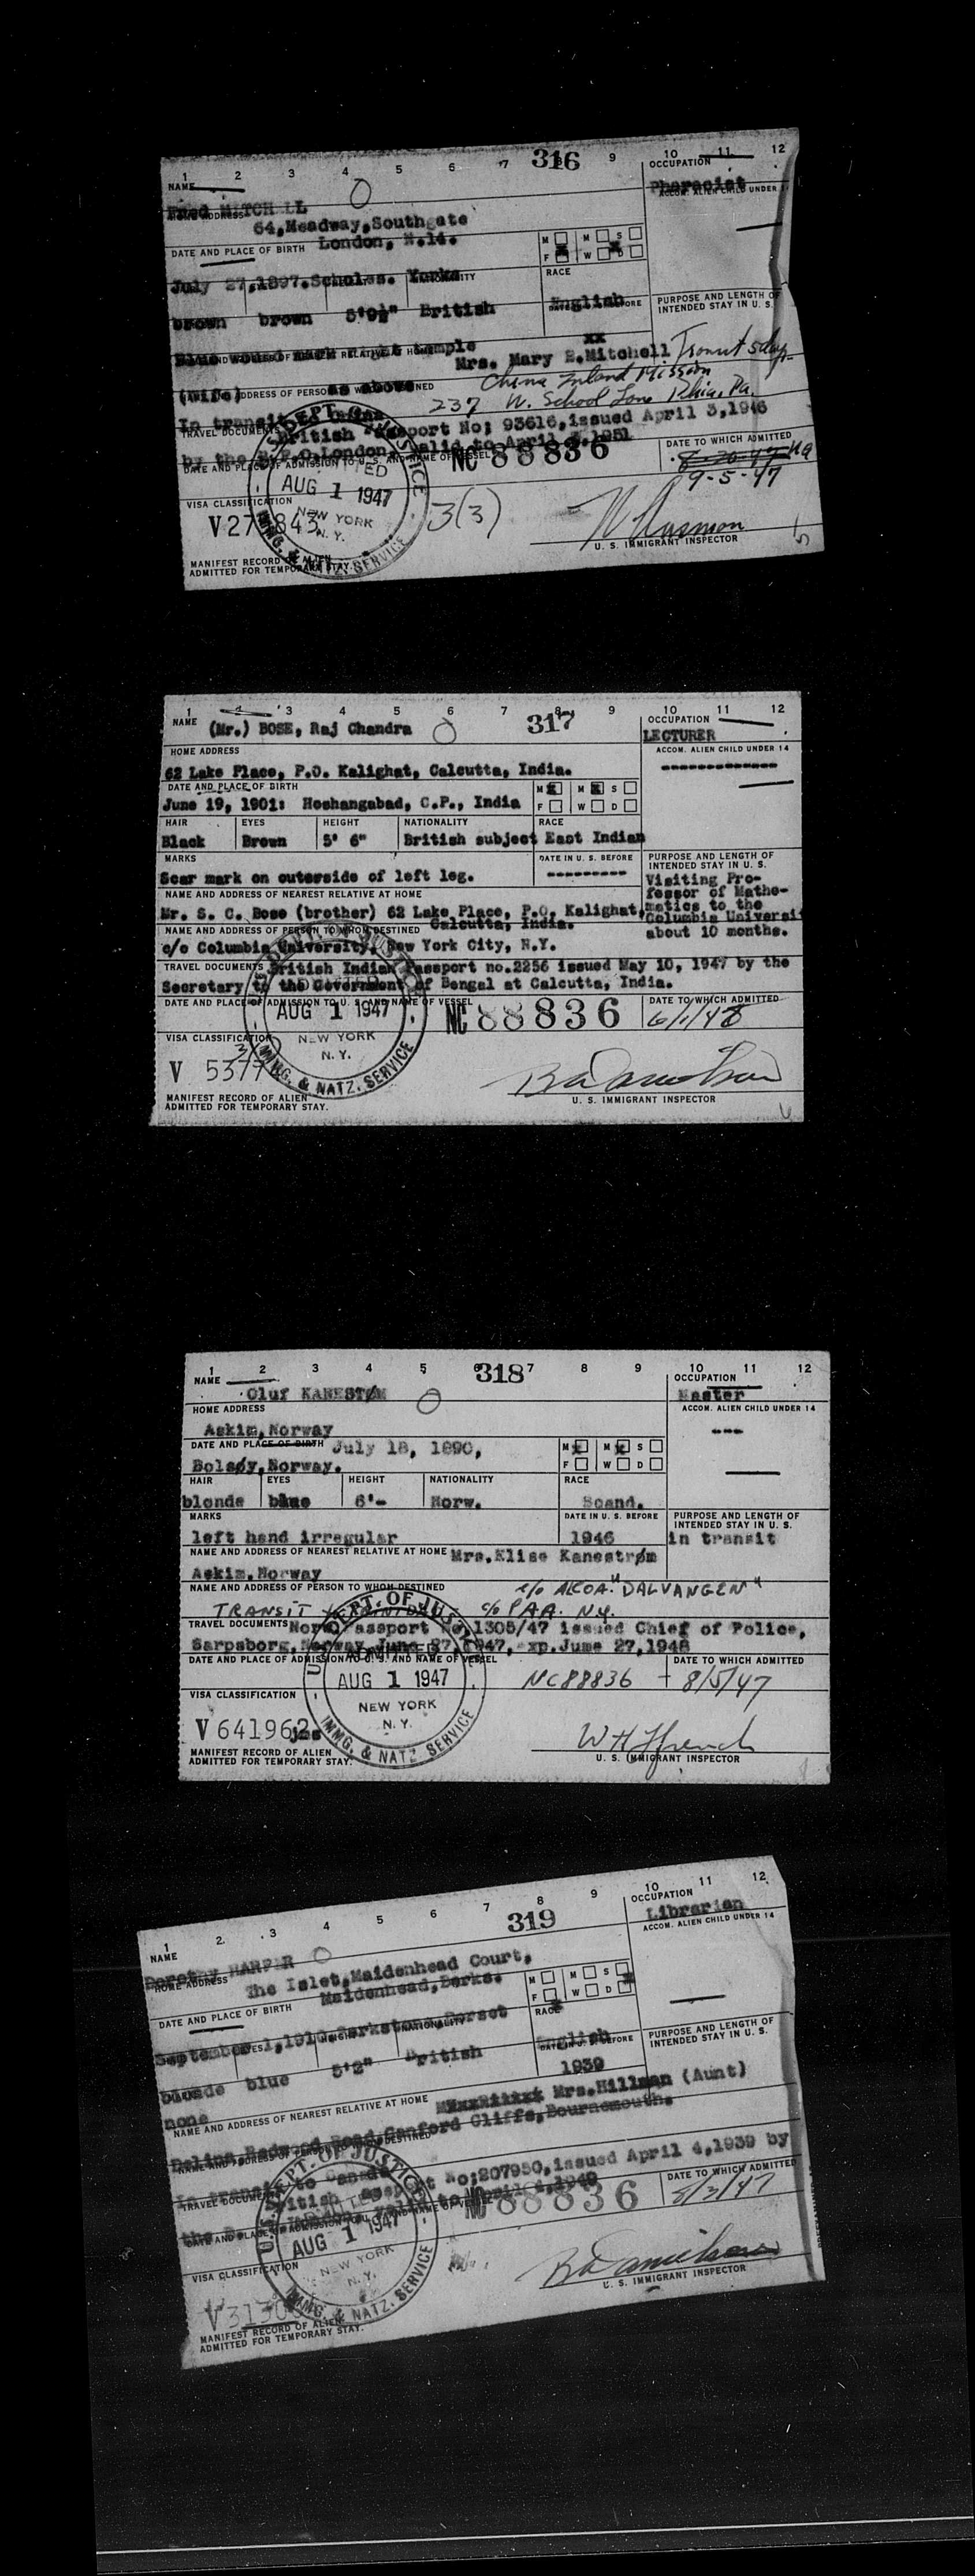 1 2 3 4 5 6 7 316 9 10 11 12
NAME
OCCUPATION
Fred MITCHELL
Pharmacist
HOME ADDRESS
ACCOM. ALIEN CHILD UNDER 14
64, Meadway, Southgate
London, N.14.
DATE AND PLACE OF BIRTH
M M S
F W D
July 27, 1897. Scholes. Yorks
RACE
brown brown 5'9½" British
English
PURPOSE AND LENGTH OF
INTENDED STAY IN U. S.
Blue wound mark temple
xx
Mrs. Mary E. Mitchell
Transit 5 days
(wife) as above
China Inland Mission
237 W. School Lane Phila, Pa.
In transit
TRAVEL DOCUMENTS
British Passport No; 93616, issued April 3, 1946
by the London, valid to April 1951
DATE TO WHICH ADMITTED
NC 88836
9-5-47
ADMITTED
AUG 1 1947
NEW YORK
N. Y.
IMMG. & NATZ. SERVICE
VISA CLASSIFICATION
3(3)
U. S. IMMIGRANT INSPECTOR
MANIFEST RECORD OF ALIEN
ADMITTED FOR TEMPORARY STAY.
1 2 3 4 5 6 7 317 9 10 11 12
NAME (Mr.) BOSE, Raj Chandra
OCCUPATION
LECTURER
HOME ADDRESS
ACCOM. ALIEN CHILD UNDER 14
62 Lake Place, P.O. Kalighat, Calcutta, India.
DATE AND PLACE OF BIRTH
M M S
June 19, 1901: Hoshangabad, C.P., India
F W D
HAIR EYES HEIGHT NATIONALITY RACE
Black Brown 5' 6" British subject East Indian
MARKS
DATE IN U. S. BEFORE
PURPOSE AND LENGTH OF
INTENDED STAY IN U. S.
Scar mark on outerside of left leg.
Visiting Pro-
fessor of Mathe-
matics to the
Columbia Universi
about 10 months.
NAME AND ADDRESS OF NEAREST RELATIVE AT HOME
Mr. S. C. Bose (brother) 62 Lake Place, P.O. Kalighat,
Calcutta, India.
NAME AND ADDRESS OF PERSON TO WHOM DESTINED
c/o Columbia University, New York City, N.Y.
TRAVEL DOCUMENTS British Indian Passport no.2256 issued May 10, 1947 by the
Secretary to the Government of Bengal at Calcutta, India.
DATE AND PLACE OF ADMISSION TO U. S. AND NAME OF VESSEL
DATE TO WHICH ADMITTED
AUG 1 1947
NC 88836
6/1/48
NEW YORK
N. Y.
IMMG. & NATZ. SERVICE
VISA CLASSIFICATION
U. S. IMMIGRANT INSPECTOR
MANIFEST RECORD OF ALIEN
ADMITTED FOR TEMPORARY STAY.
1 2 3 4 5 6 318 7 8 9 10 11 12
NAME
OCCUPATION
Oluf KANESTØM
Master
HOME ADDRESS
ACCOM. ALIEN CHILD UNDER 14
Askim, Norway
DATE AND PLACE OF BIRTH July 18, 1890,
M M S
Bolsøy, Norway.
F W D
HAIR EYES HEIGHT NATIONALITY RACE
blonde blue 6'- Norw. Scand.
MARKS
DATE IN U. S. BEFORE
PURPOSE AND LENGTH OF
INTENDED STAY IN U. S.
left hand irregular 1946 in transit
NAME AND ADDRESS OF NEAREST RELATIVE AT HOME Mrs. Elise Kanestrøm
Askim, Norway
NAME AND ADDRESS OF PERSON TO WHOM DESTINED
c/o ALCOA. "DALVANGEN"
TRANSIT c/o PAA. N.Y.
TRAVEL DOCUMENTS Norw. Passport No. 1305/47 issued Chief of Police,
Sarpsborg, Norway June 27, 1947, exp. June 27, 1948
DATE AND PLACE OF ADMISSION TO U. S. AND NAME OF VESSEL
DATE TO WHICH ADMITTED
AUG 1 1947
NC88836
8/5/47
NEW YORK
N. Y.
IMMG. & NATZ. SERVICE
VISA CLASSIFICATION
V 641962
U. S. IMMIGRANT INSPECTOR
MANIFEST RECORD OF ALIEN
ADMITTED FOR TEMPORARY STAY.
1 2 3 4 5 6 7 8 9 10 11 12
319
NAME
OCCUPATION
Librarian
Dorothy HARPER
ACCOM. ALIEN CHILD UNDER 14
HOME ADDRESS
The Islet, Maidenhead Court,
Maidenhead, Berks.
DATE AND PLACE OF BIRTH
M M S
F W D
RACE
September Dorset
PURPOSE AND LENGTH OF
INTENDED STAY IN U. S.
blonde blue 5'2" British
English
1939
none
NAME AND ADDRESS OF NEAREST RELATIVE AT HOME
Mrs. Hillman (Aunt)
Road, Canford Cliffs, Bournemouth.
In transit to Canada
TRAVEL DOCUMENTS
British Passport No; 207950, issued April 4, 1939 by
DATE TO WHICH ADMITTED
88836
8/3/47
AUG 1 1947
NEW YORK
N. Y.
IMMG. & NATZ. SERVICE
VISA CLASSIFICATION
U. S. IMMIGRANT INSPECTOR
MANIFEST RECORD OF ALIEN
ADMITTED FOR TEMPORARY STAY.